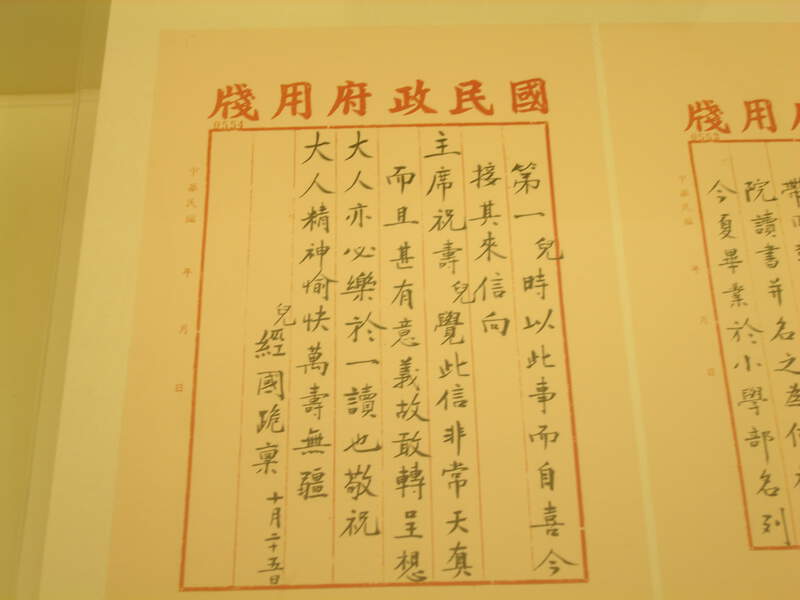 國民政府用牋
0554
第一兒時以此事而自喜今
接其來信向
主席祝壽兒覺此信非常天真
而且甚有意義故敢轉呈想
大人亦必樂於一讀也敬祝
大人精神愉快萬壽無疆
兒經國跪稟 十月二十五日
中華民國 年 月 日
用牋
院讀書并名之為
今夏畢業於小學部名列
中華民國 年 月 日